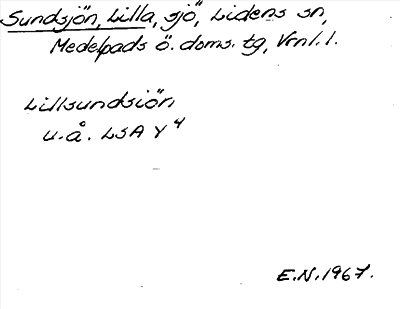 Sundsjön, Lilla, sjö, Lidens sn,
Medelpads ö. doms. tg, Vrnl. l.
Lillsundsiön
u.å. LSA Y4
E.N. 1967.